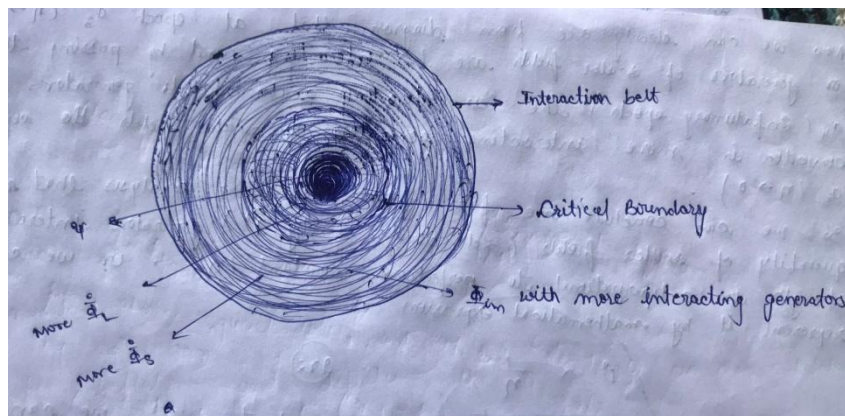 Interaction belt
Critical Boundary
Φ_im with more interacting generators
more Φ̇_L
more Φ̇_S